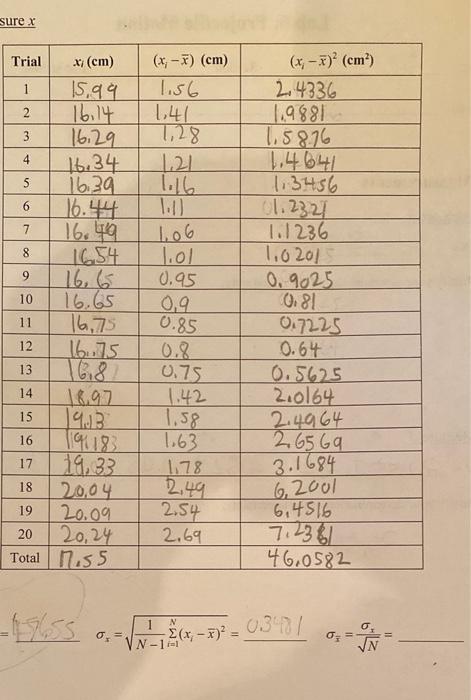 sure x
Trial xᵢ (cm) (xᵢ – x̄) (cm) (xᵢ – x̄)² (cm²)
1 15.99 1.56 2.4336
2 16.14 1.41 1.9881
3 16.29 1.28 1.5876
4 16.34 1.21 1.4641
5 16.39 1.16 1.3456
6 16.44 1.11 1.2321
7 16.49 1.06 1.1236
8 16.54 1.01 1.0201
9 16.65 0.95 0.9025
10 16.65 0.9 0.81
11 16.75 0.85 0.7225
12 16.75 0.8 0.64
13 16.8 0.75 0.5625
14 18.97 1.42 2.0164
15 19.13 1.58 2.4964
16 19.183 1.63 2.6569
17 19.33 1.78 3.1684
18 20.04 2.49 6.2001
19 20.09 2.54 6.4516
20 20.24 2.69 7.2361
Total 17.55 46.0582
= σₓ = √(1/(N – 1) Σᵢ₌₁ᴺ (xᵢ – x̄)²) = 0.3481 σₓ̄ = σₓ/√N =